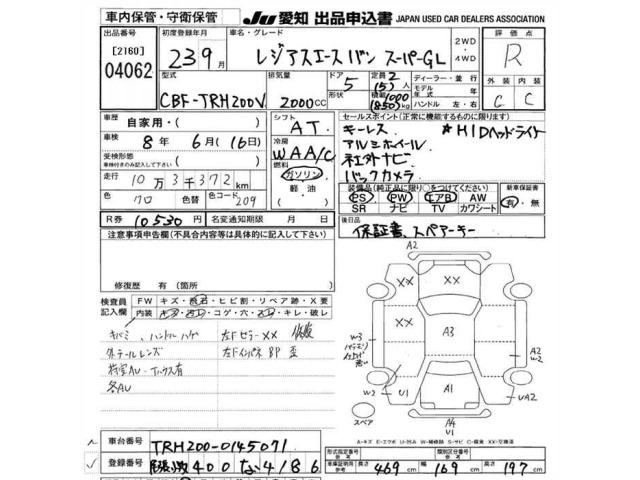 車内保管・守衛保管
JU 愛知 出品申込書 JAPAN USED CAR DEALERS ASSOCIATION
出品番号
[2160]
04062
初度登録年月
23 9月
車名・グレード
レジアスエース バン スーパーGL
2WD
4WD
評価点
R
型式
CBF-TRH200V
排気量
2000CC
ドア
5
形状
定員 2
(5)人
積載 1000
(850)kg
ディーラー・並行
モデル年式 年
ハンドル 左・右
外装 内装
C C
車歴
自家用・( )
車検
8年 6月(16日)
受検形態
車検付きのみ記入して下さい
( )
走行
10万3千372km
色
クロ
色替
色コード
209
シフト
AT
冷房
WAA/C
燃料
ガソリン
軽油
( )
セールスポイント(正常に機能するものに限ります)
キーレス ★HIDヘッドライト
アルミホイール
社外ナビ
バックカメラ
装備品(純正品に限り○をつけてください)
PS PW エアB AW
SR ナビ TV カワシート
新車保証書
有・無
R券 10530円
名変通知期限 月 日
後日品
保証書、スペアーキー
注意事項申告欄(不具合内容等は具体的に記入して下さい)
修復歴 有(箇所 )
検査員記入欄
FW キズ・飛石・ヒビ割・リペア跡・X要
内装 キズ・汚レ・コゲ・穴・スレ・キレ・破レ
キバミ、ハンドルハゲ 左Fピラー XX 修復
外テールレンズ 左Fインパネ BP 歪
各AU
A2
XX XX
XX
A3
W3
A2
W2
W2
U1
A1
UA2
A4
U1
スペア
A-キズ E-エクボ U-凹み W-補修跡 S-サビ C-腐食 XX-交換済
車台番号
TRH200-0145071
登録番号
尾張小牧 400 な 4186
形式指定番号
類別区分番号
車庫証明用参考値
長さ 469 cm
幅 169 cm
高さ 197 cm